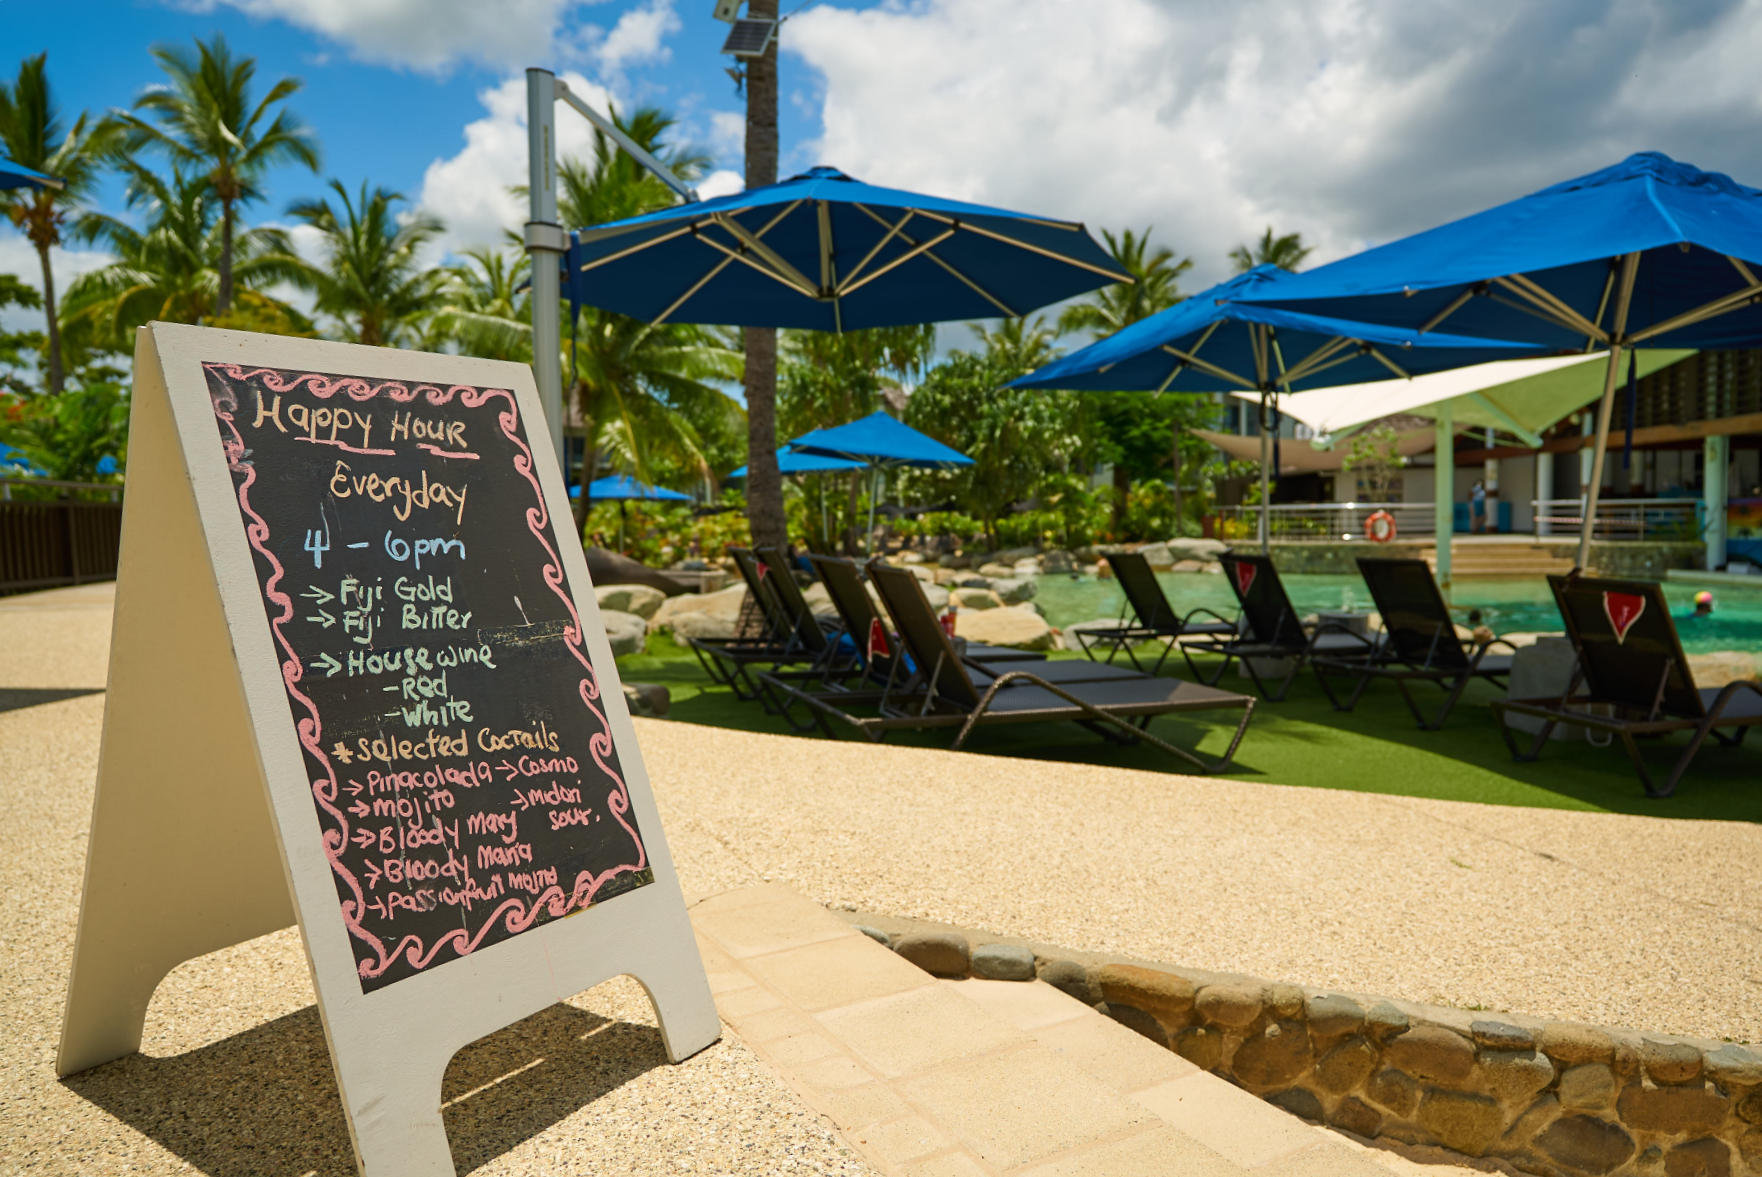 Happy Hour
Everyday
4 - 6pm
→ Fiji Gold
→ Fiji Bitter
→ House wine
- Red
- White
* Selected Coctails
→ Pinacolada → Cosmo
→ mojito → midori
sour.
→ Bloody Mary
→ Bloody Maria
→ Passionfruit mojito